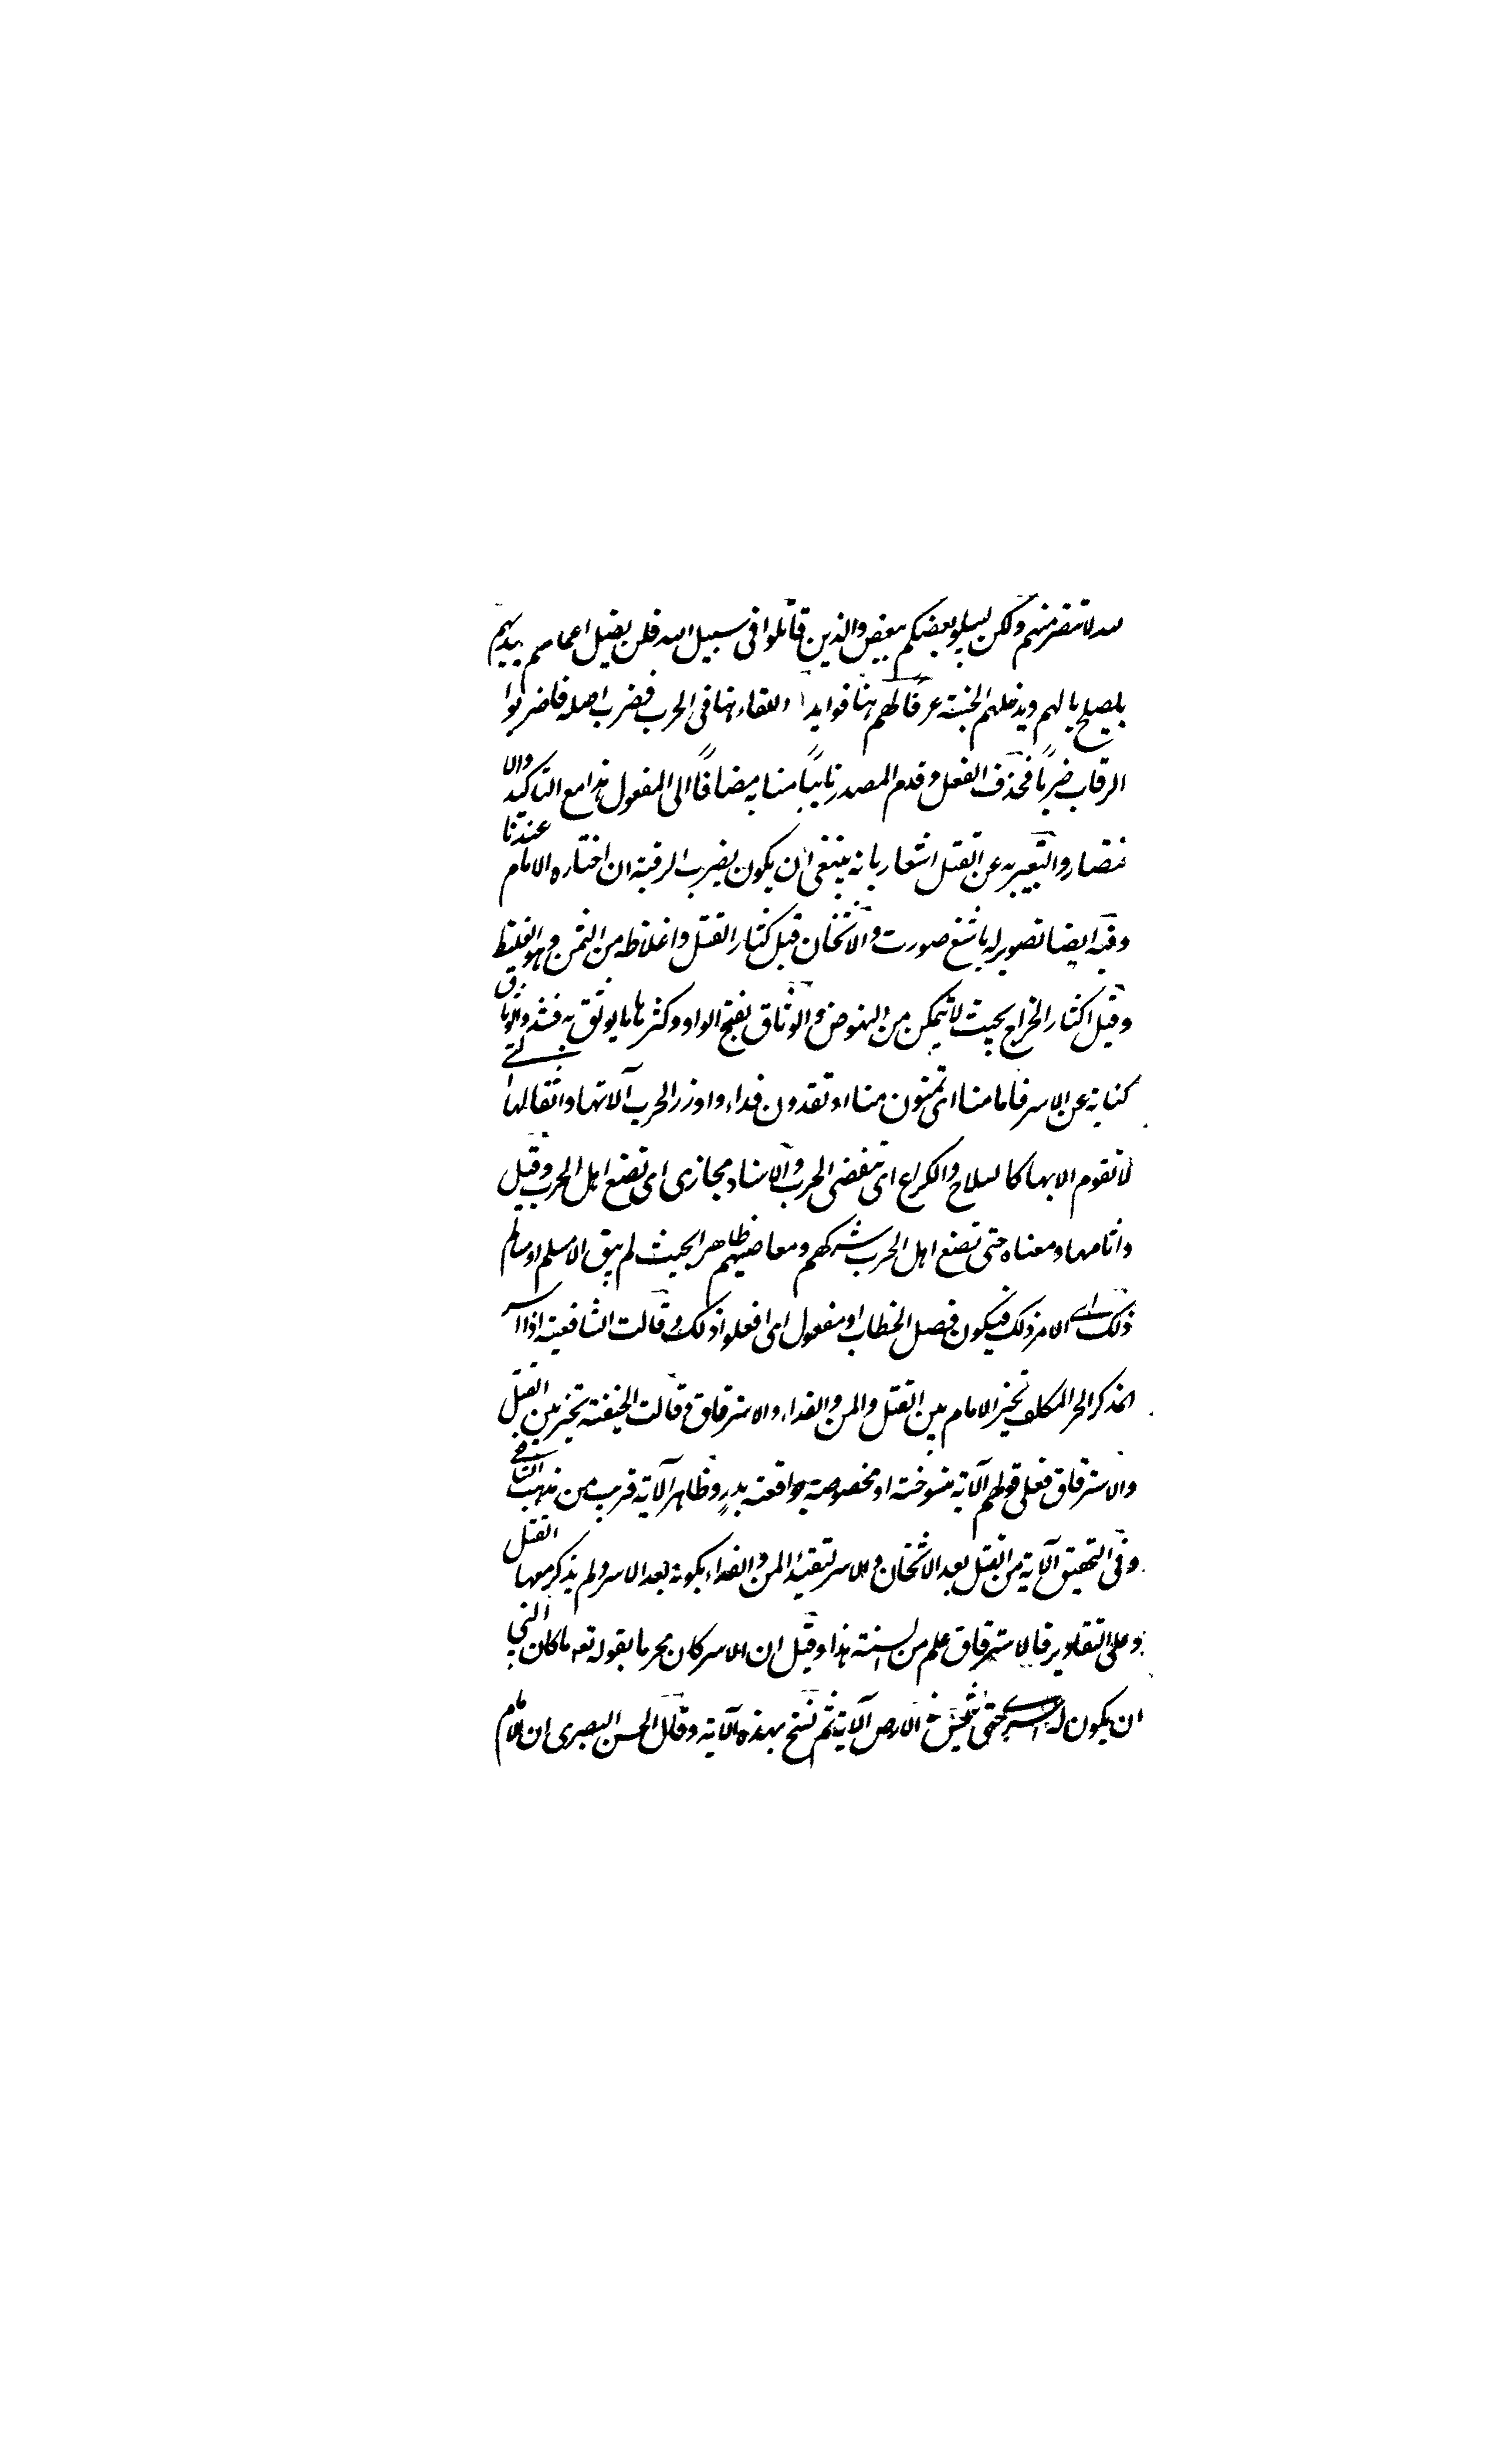 الله لانتصر منهم ولكن ليبلو بعضكم ببعض والذين قاتلوا في سبيل الله فلن يضل اعمالهم سيهديهم
يصلح بالهم ويدخلهم الجنة عرفها لهم هنا فوايد ا اللقاء هنا في الحرب فضرب اصله فاضربوا
الرقاب ضرباً فحذف الفعل وقدم المصدر نايباً منابه مضافاً الى المفعول هذا مع التاكيد والا
ختصار والتعبير به عن القتل اشعار بانه ينبغي ان يكون بضرب الرقبة ان اختاره الامام عندنا
وفيه ايضا تصوير له باشنع صورت والاثخان قيل كثار القتل واغلاظه من الثخن وهو الغليظ
وقيل اكثار الجراح بحيث لا يتمكن من النهوض والوثاق بفتح الواو وكسرها ما يوثق به فشدوا الوثاق
كناية عن الاسر فاما منا اى تمنون منا او تفدون فداء واوزار الحرب آلاتها واثقالها التي
لا تقوم الا بها كالسلاح والكراع اى تنقضى الحرب والاسناد مجازى اى تضع اهل الحرب وقيل
واثامها ومعناه حتى تضع اهل الحرب شركهم ومعاصيهم ظاهرا بحيث لم يبق الا مسلم او مسالم
ذلك اى الامر ذلك فيكون فصل الخطاب او مفعول اى افعلوا ذلك وقالت الشافعية اذا اسر
الذكر الحر المكلف تخير الامام بين القتل والمن والفداء والاسترقاق وقالت الحنفية تخير بين القتل
والاسترقاق فعلى قولهم الآية منسوخة او مخصوصة بواقعة بدر وظاهر الآية قريب من مذهب الشافعي
وفى التحقيق الآية من القتل بعد الاثخان والاسر لتقييد المن والفداء بكونه بعد الاسر ولم يذكر معها القتل
وعلى التقادير فالاسترقاق علم من السنة هذا وقيل ان الاسر كان محرما بقوله تعه ما كان النبي
ان يكون له اسرى حتى يثخن في الارض الآية ثم نسخ بهذه الآية وقال الحسن البصرى ان الامام